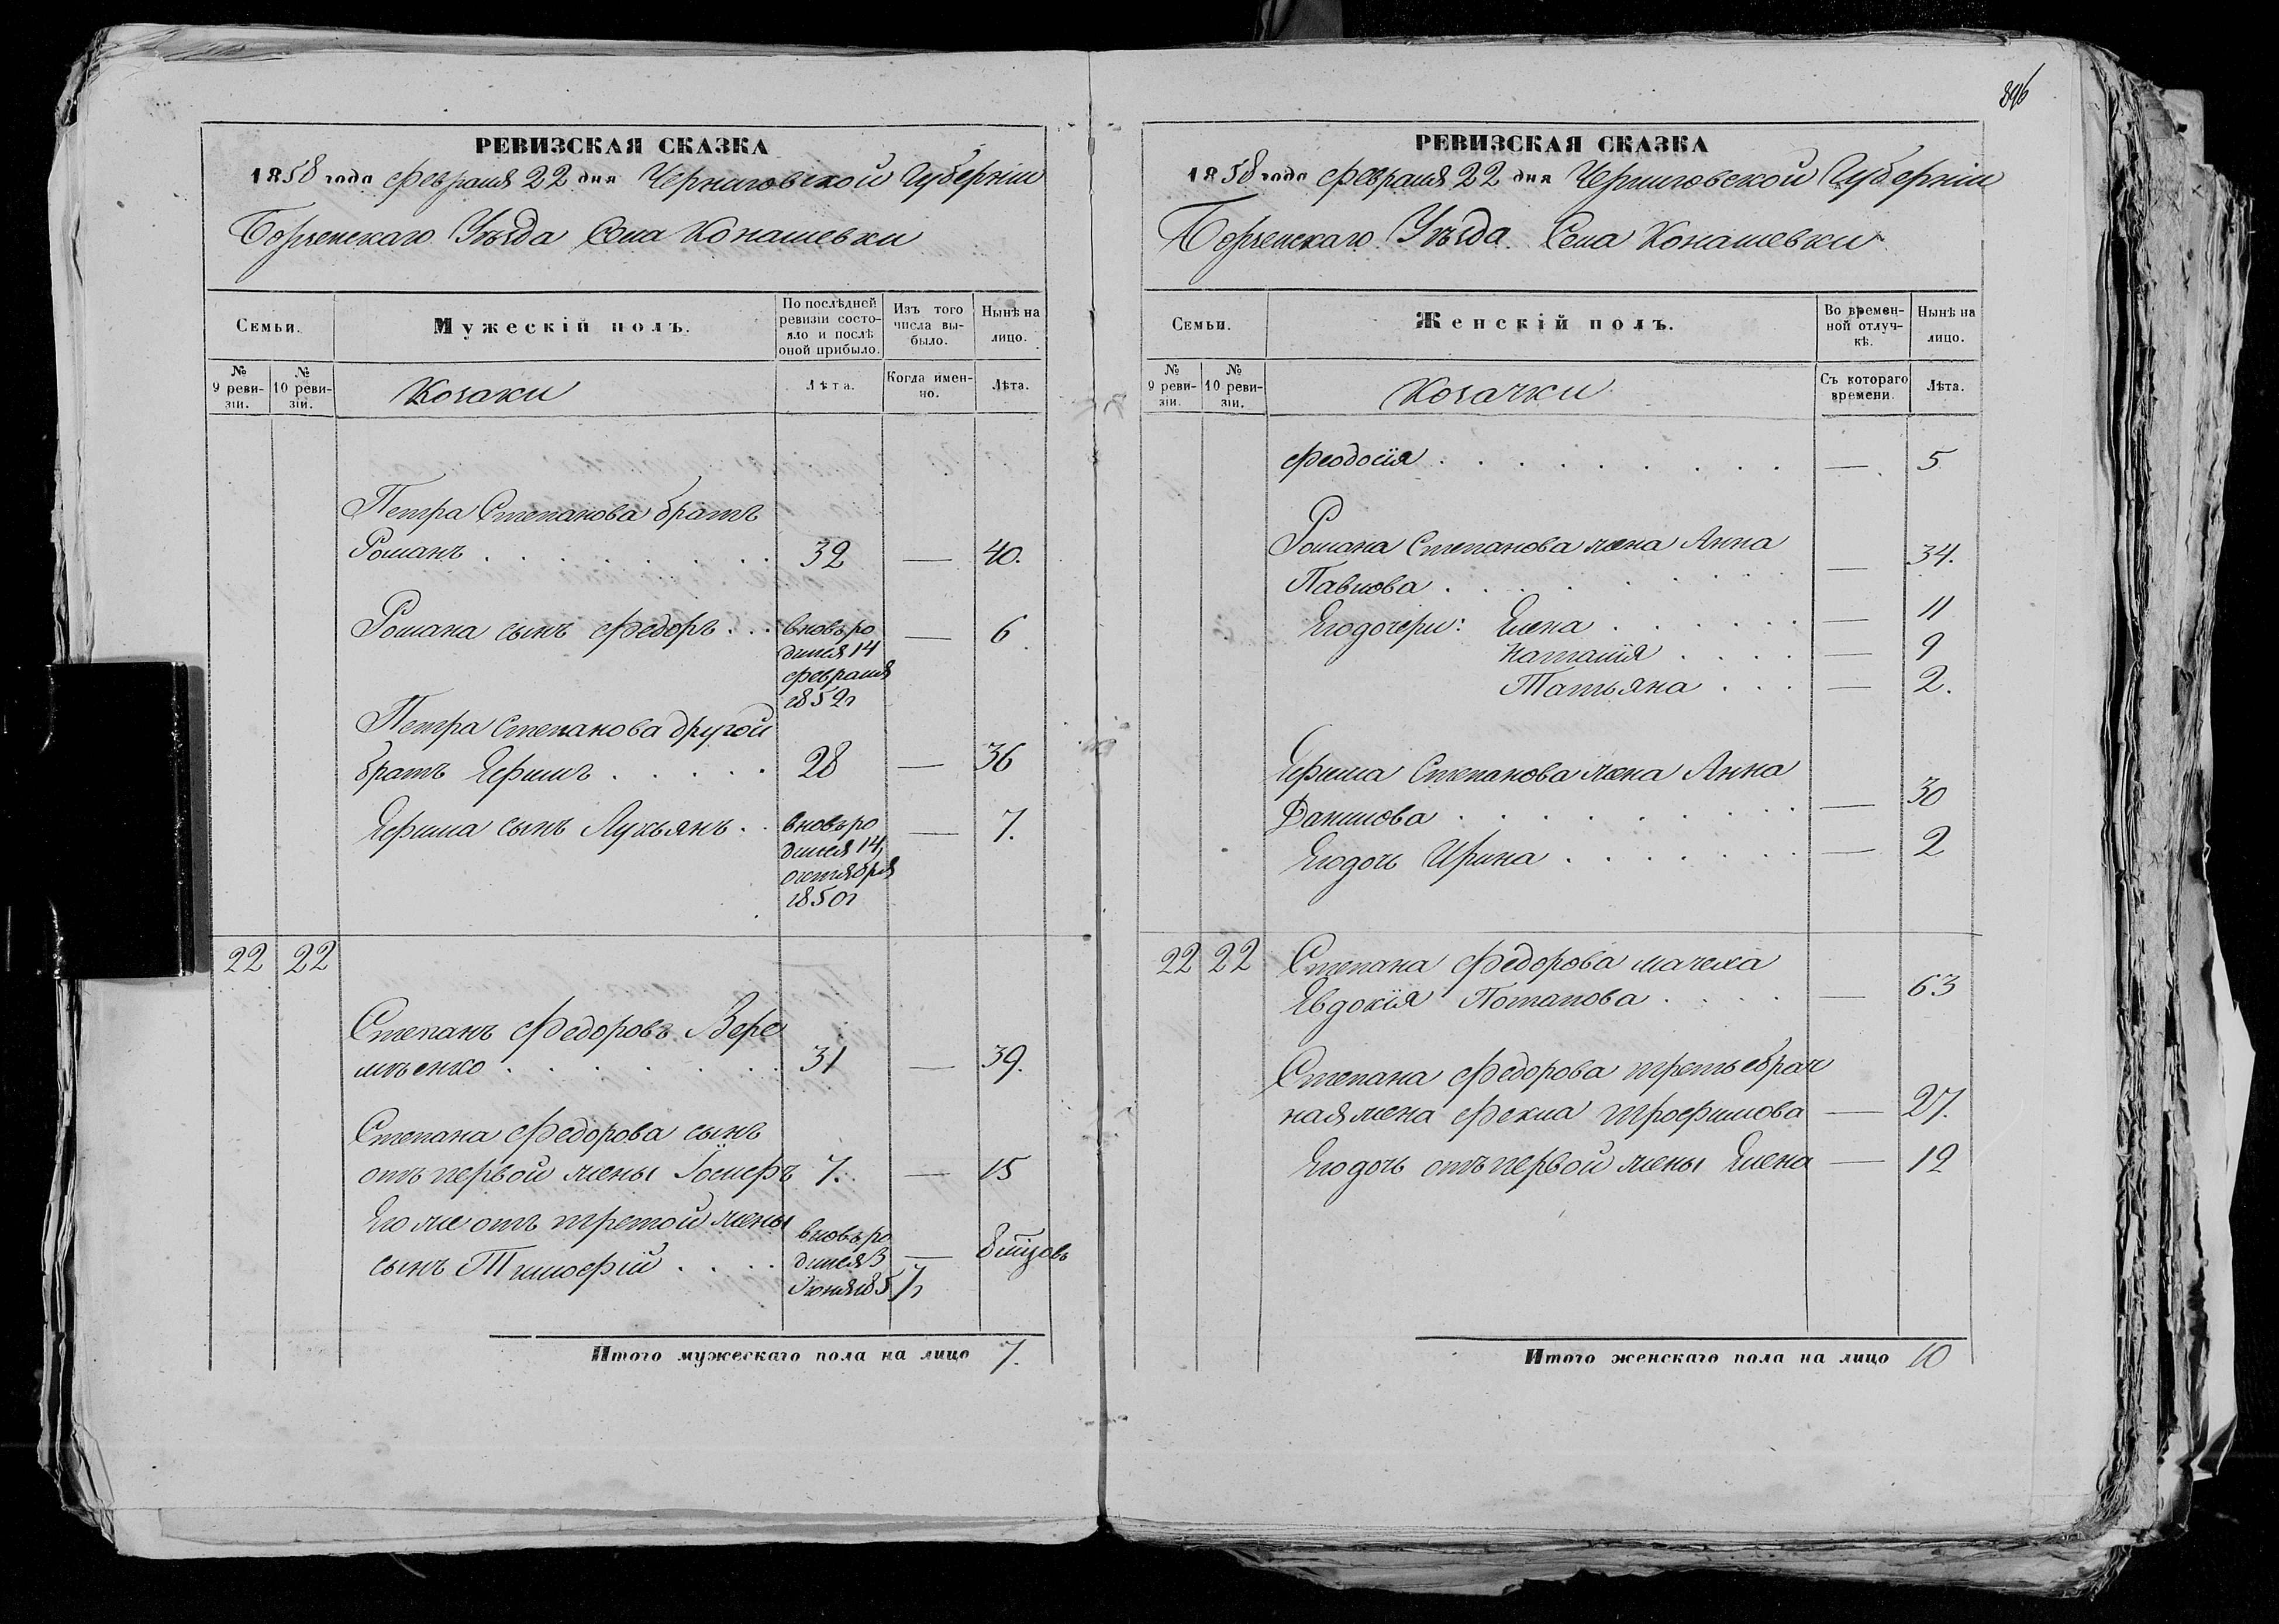 РЕВИЗСКАЯ СКАЗКА
1858 года Февраля 22 дня Черниговской Губерніи
Борзенскаго Уѣзда Села Конашевки
Семьи.
Мужескій полъ.
По послѣдней ревизіи состояло и послѣ оной прибыло.
Изъ того числа выбыло.
Нынѣ на лицо.
№ 9 ревизіи.
№ 10 ревизіи.
Козаки
Лѣта.
Когда именно.
Лѣта.
Петра Степанова братъ
Романъ . . . . . . . 32 — 40.
Романа сынъ Федоръ . . . вновь ро — 6.
дился 14
февраля
1852г
Петра Степанова другой
братъ Ефимъ . . . . . 28 — 36
Ефима сынъ Лукьянъ . . вновь ро — 7.
дился 14
октября
1850г
22 22
Степанъ Федоровъ Вере
мѣенко . . . . . . . 31 — 39.
Степана Федорова сынъ
отъ первой жены Іосифъ 7. — 15
Его же отъ третой жены
сынъ Тимофій . . . . вновь ро
дился 3 — 8 мцовъ
Іюня 1857г
Итого мужескаго пола на лицо 7.
896
РЕВИЗСКАЯ СКАЗКА
1858 года Февраля 22 дня Черниговской Губерніи
Борзенскаго Уѣзда. Села Конашевки
Семьи.
Женскій полъ.
Во временной отлучкѣ.
Нынѣ на лицо.
№ 9 ревизіи.
№ 10 ревизіи.
Козачки
Съ котораго времени.
Лѣта.
Феодосія . . . . . . . . . — 5
Романа Степанова жена Анна
Павлова . . . . . . . — 34.
Его дочери: Елена . . . . . . — 11
Наталія . . . . — 9
Татьяна . . . — 2.
Ефима Степанова жена Анна
Данилова . . . . . . . . — 30
Его дочь Ирина . . . . . . . — 2
22 22 Степана Федорова мачеха
Евдокія Потапова . . . . — 63
Степана Федорова третьебрач
ная жена Фекла Трофимова — 27.
Его дочь отъ первой жены Елена — 12
Итого женскаго пола на лицо 10